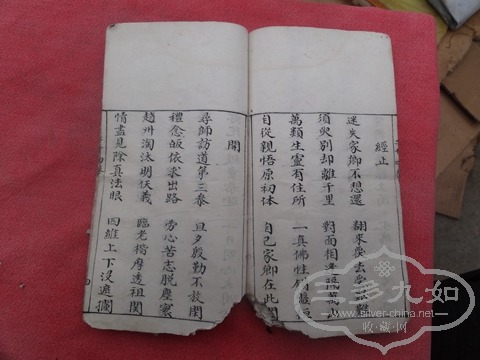 經止
迷失家鄉不想還　翻來覆去受
須臾別却離千里　對面相逢隔萬
萬類生靈有住所　一真佛性
自從親悟原初体　自己家鄉在此関
開
尋師訪道第三參　且夕殷勤不放関
禮念皈依求出路　勞心苦志脫塵寰
趙州淘汰明伏義　臨老楷摩透祖関
情盡見除真法眼　四維上下沒遮攔
三多九如
www.silver-china.net
收藏网